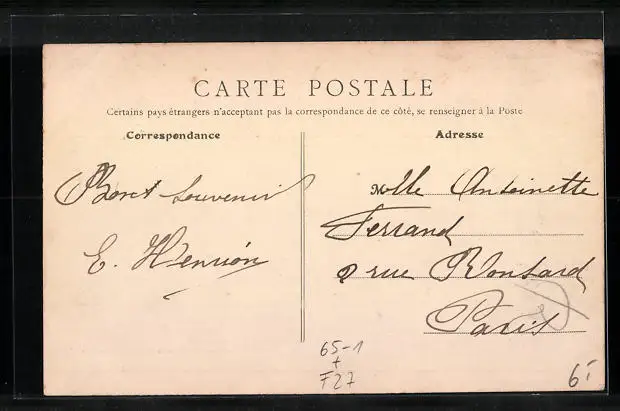 CARTE POSTALE
Certains pays étrangers n'acceptant pas la correspondance de ce côté, se renseigner à la Poste
Correspondance
Adresse
souvenir
E. Henrion
Mlle Antoinette
Ferrand
rue Ronsard
Paris
65-1
+
F27